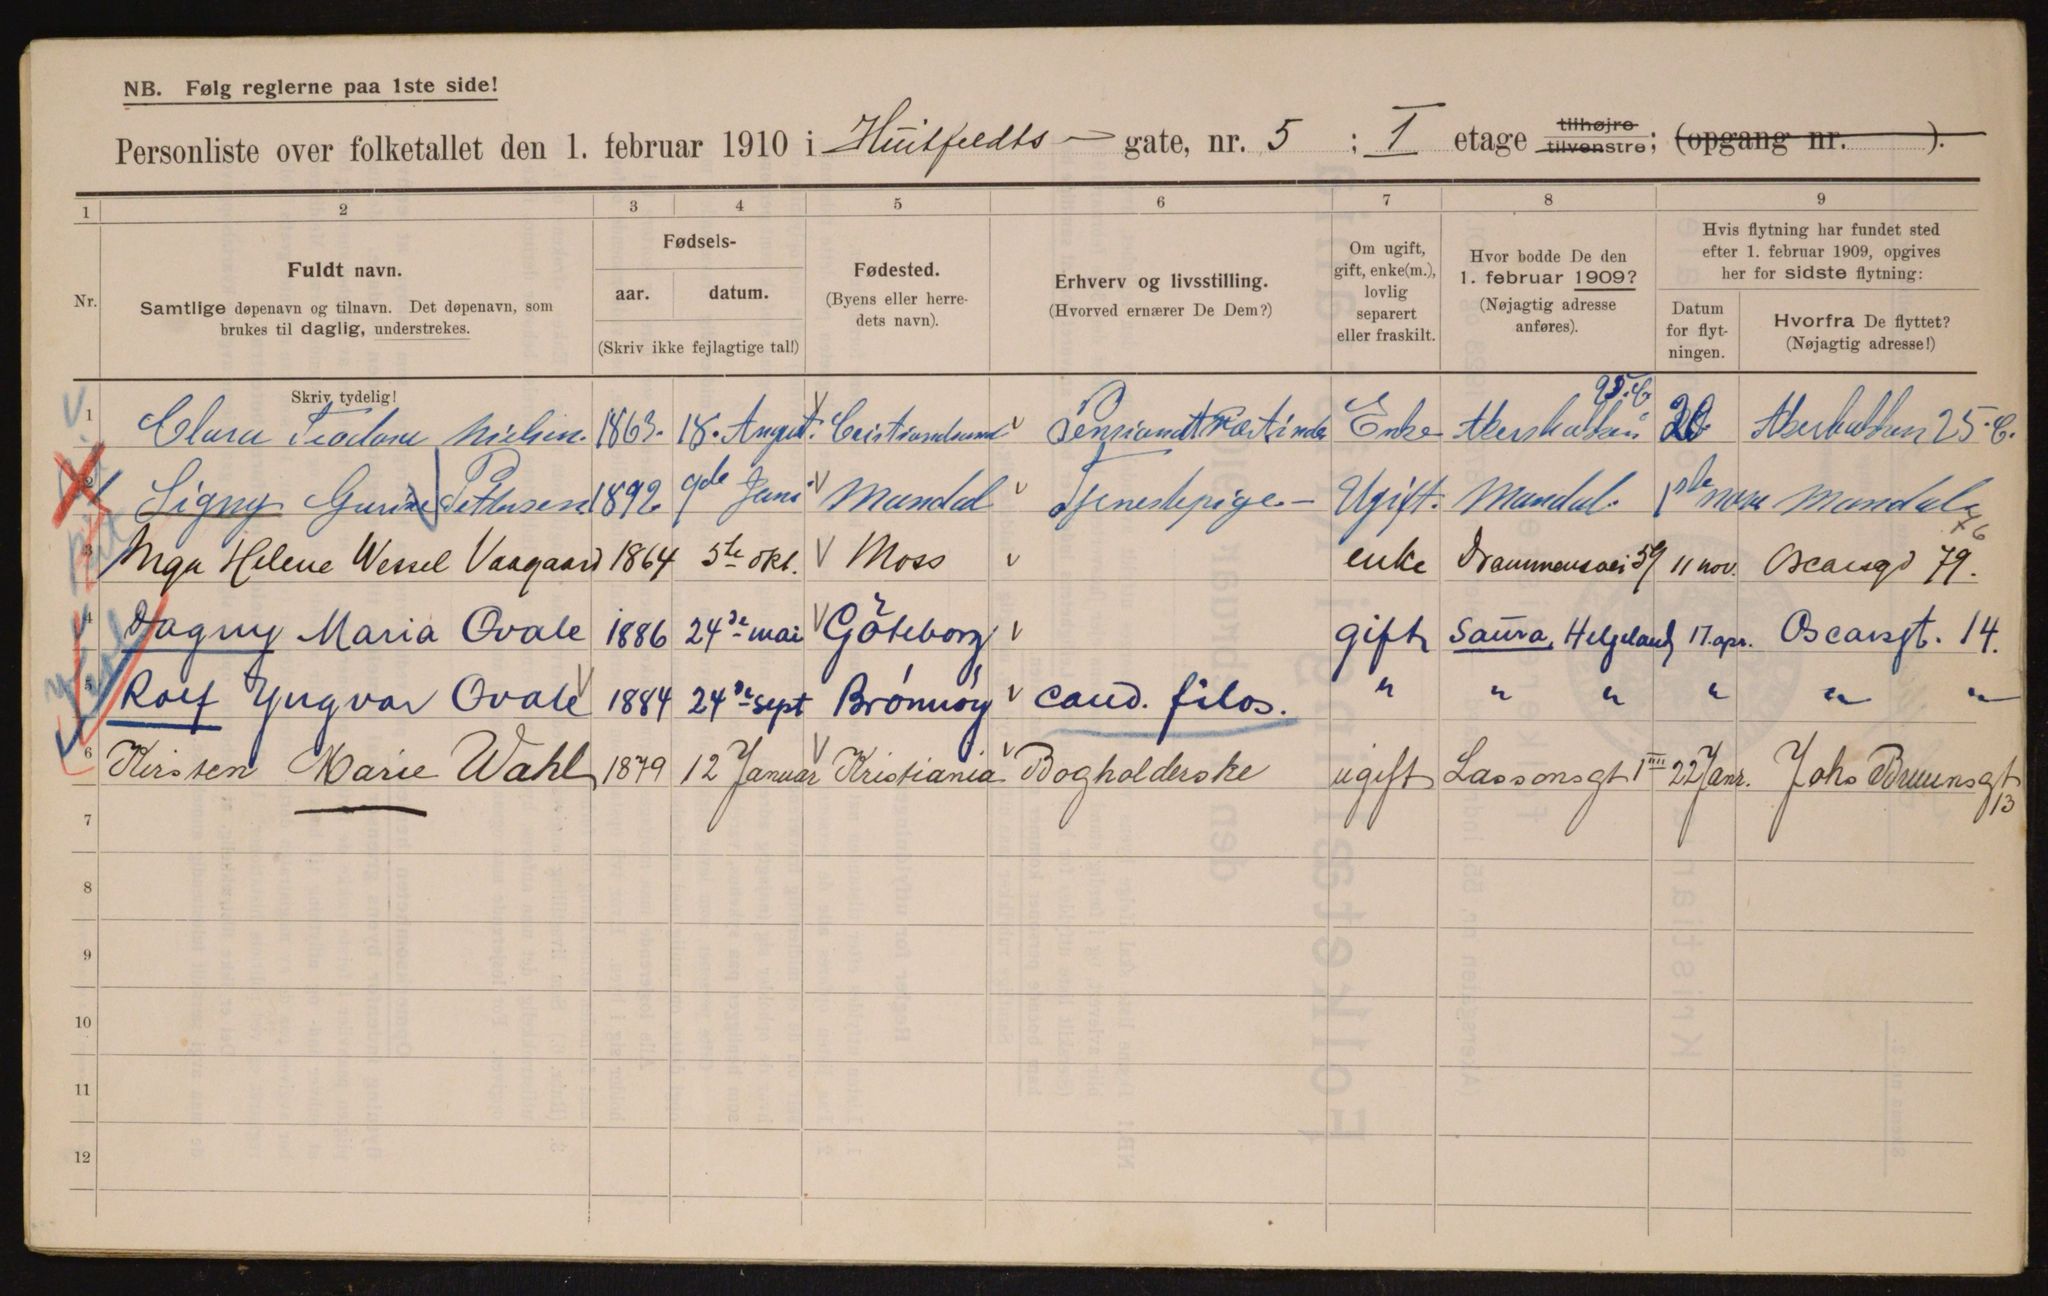 NB. Følg reglerne paa 1ste side!
Personliste over folketallet den 1. februar 1910 i Huitfeldts gate, nr. 5 ; I etage tilhøjre tilvenstre; (opgang nr. ).
1 2 3 4 5 6 7 8 9
Nr.
Fuldt navn.
Samtlige døpenavn og tilnavn. Det døpenavn, som
brukes til daglig, understrekes.
Skriv tydelig!
Fødsels-
aar. datum.
(Skriv ikke fejlagtige tal!)
Fødested.
(Byens eller herre-
dets navn).
Erhverv og livsstilling.
(Hvorved ernærer De Dem?)
Om ugift,
gift, enke(m.),
lovlig
separert
eller fraskilt.
Hvor bodde De den
1. februar 1909?
(Nøjagtig adresse
anføres).
Hvis flytning har fundet sted
efter 1. februar 1909, opgives
her for sidste flytning:
Datum
for flyt-
ningen.
Hvorfra De flyttet?
(Nøjagtig adresse!)
1 Clara Teodora Nielsen. 1863. 18. August. Cristiansund Enke Akersbakken 25. C.
2 Signy Gurine Pettersen 1892. 9de Juni Mandal Tjenestepige - Ugift. Mandal. 1ste nov. Mandal
3 Inga Helene Wessel Vaagaard 1864 5te okt. Moss enke Drammensvei 11 nov. Oscarsgt 79.
4 Dagny Maria Ovale 1886 24de mai Göteborg gift Saura, Helgeland 17. apr. Oscarsgt. 14.
5 Rolf Yngvar Ovale 1884 24de sept Brønnøy cand. filos. " " " " " "
6 Kirsten Marie Wahl 1879 12 Januar Kristiania Bogholderske ugift Lassonsgt 1 III 22 Janr. Johs Bruunsgt
13
7
8
9
10
11
12